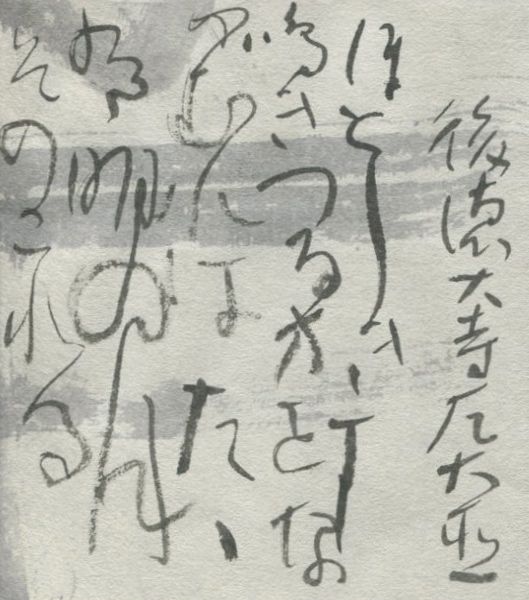 後徳大寺左大臣
ほとゝきす
鳴きつる方をな
がむれはたゝ
有明の月
そのこれる